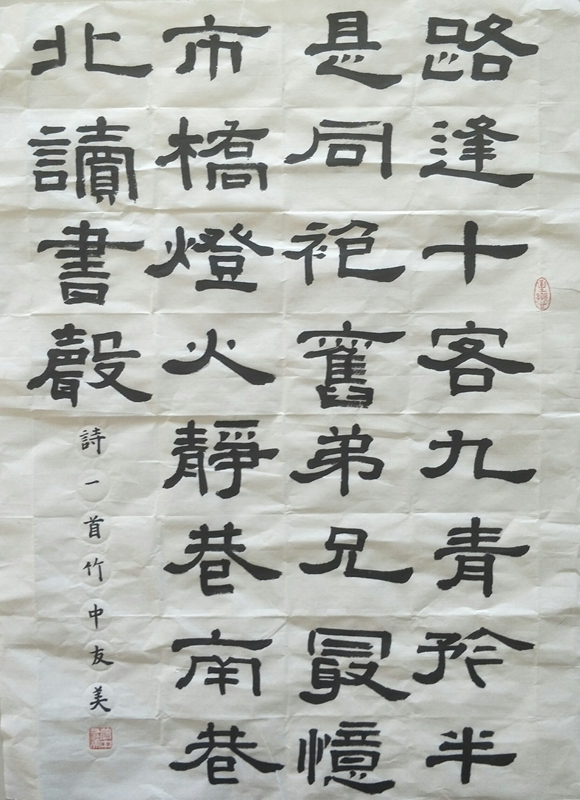 路逢十客九青矜半
是同袍舊弟兄最憶
市橋燈火靜巷南巷
北讀書聲
詩一首竹中友美